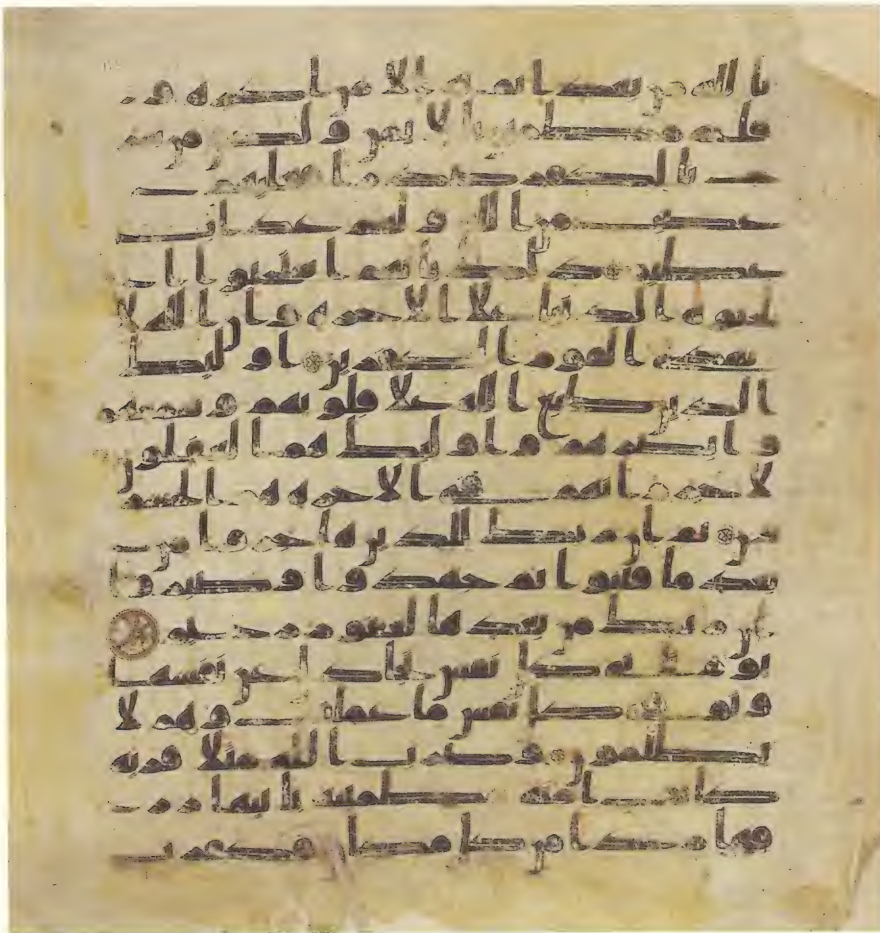 بالله من بعد ايمنه الا من اكره و
قلبه مطمئن بالايمن ولكن من شر
ح بالكفر صدرا فعليهم
غضب من الله ولهم عذاب
عظيم ذلك بانهم استحبوا ا
لحيوة الدنيا على الاخرة وان الله لا
يهدى القوم الكفرين اولئك
الذين طبع الله على قلوبهم وسمعهم
وابصرهم واولئك هم الغفلون
لا جرم انهم فى الاخرة هم الخسر
ون ثم ان ربك للذين هاجروا من
بعد ما فتنوا ثم جهدوا وصبروا ا
ن ربك من بعدها لغفور رحيم
يوم تاتى كل نفس تجادل عن نفسها
وتوفى كل نفس ما عملت وهم لا
يظلمون وضرب الله مثلا قرية
كانت امنة مطمئنة ياتيها ر
زقها رغدا من كل مكان فكفرت